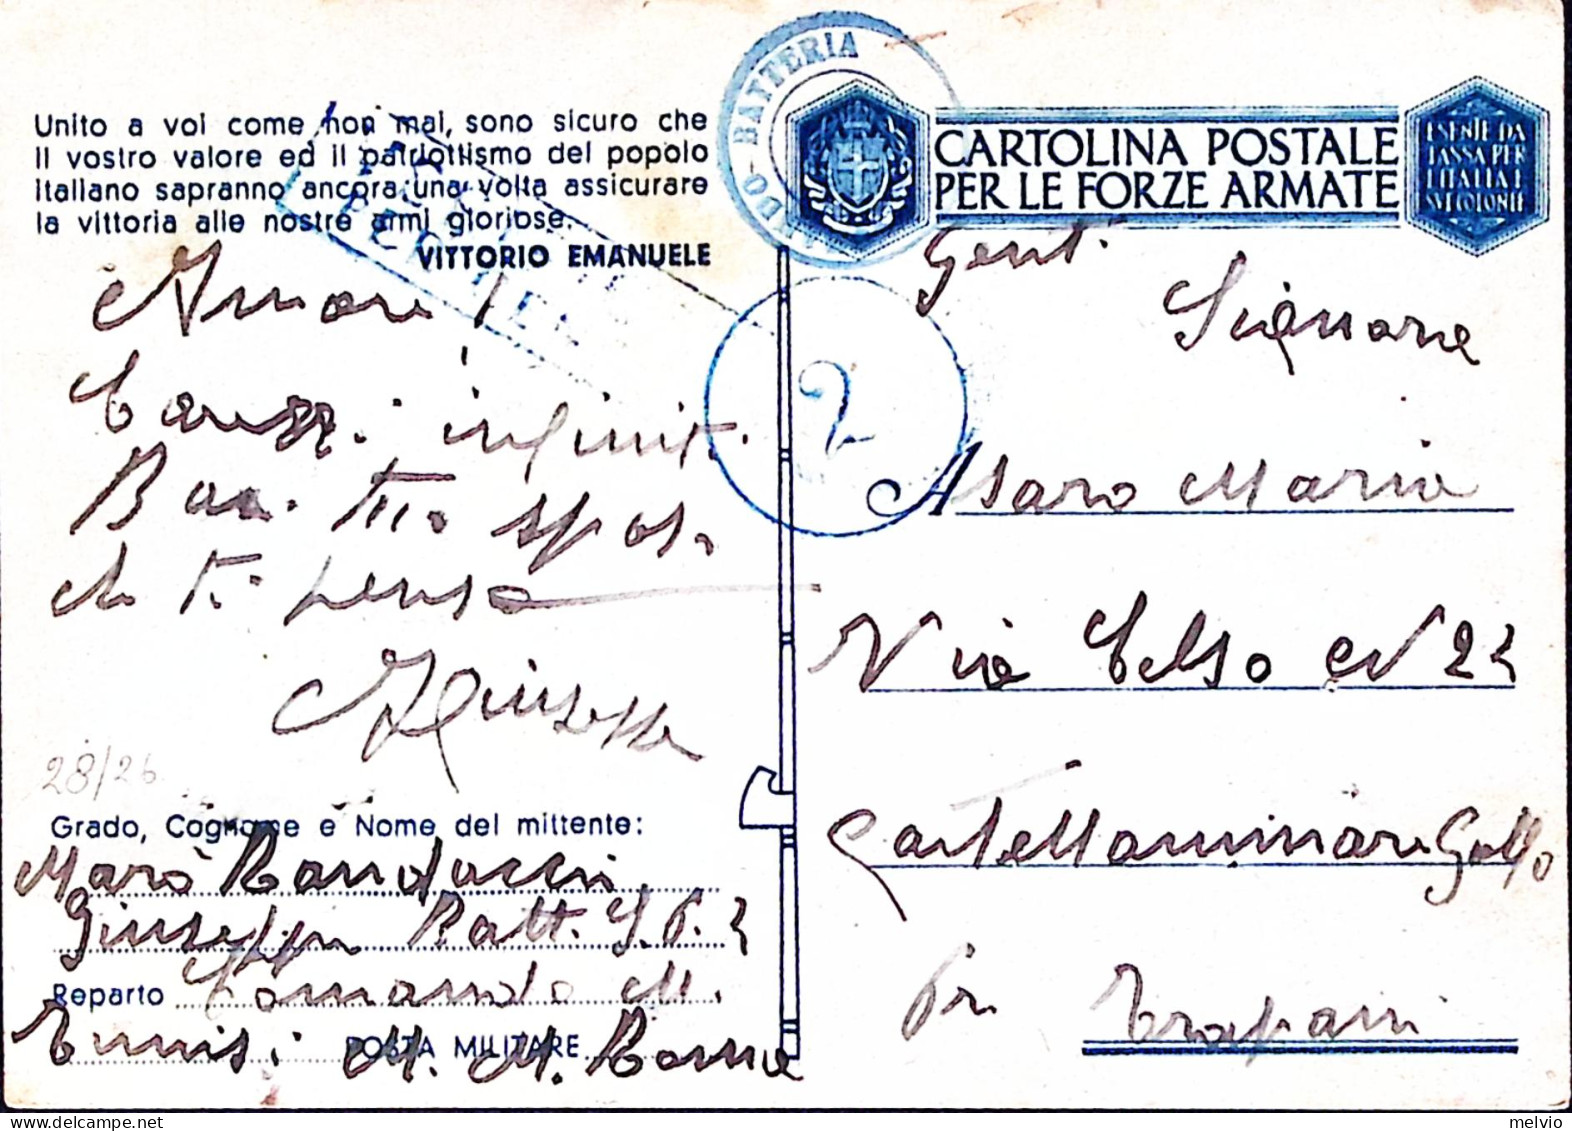 Unito a voi come non mai, sono sicuro che
il vostro valore ed il patriottismo del popolo
italiano sapranno ancora una volta assicurare
la vittoria alle nostre armi gloriose.
VITTORIO EMANUELE
Amore
Carezz. infinit.
Bac. tuo spos.
che ti pensa
Giuseppe
28/26
Grado, Cognome e Nome del mittente:
Marò Randacci
Giuseppe Batt. S.P. 2
Reparto Comando M.
Tunisi
POSTA MILITARE
M. M. Roma
BATTERIA
CARTOLINA POSTALE
PER LE FORZE ARMATE
ESENTE DA
TASSA PER
L'ITALIA E
SUE COLONIE
2
Gent.
Signora
Asaro Maria
Via Celso N 22
Castellammare Golfo
Pr. Trapani
melvio